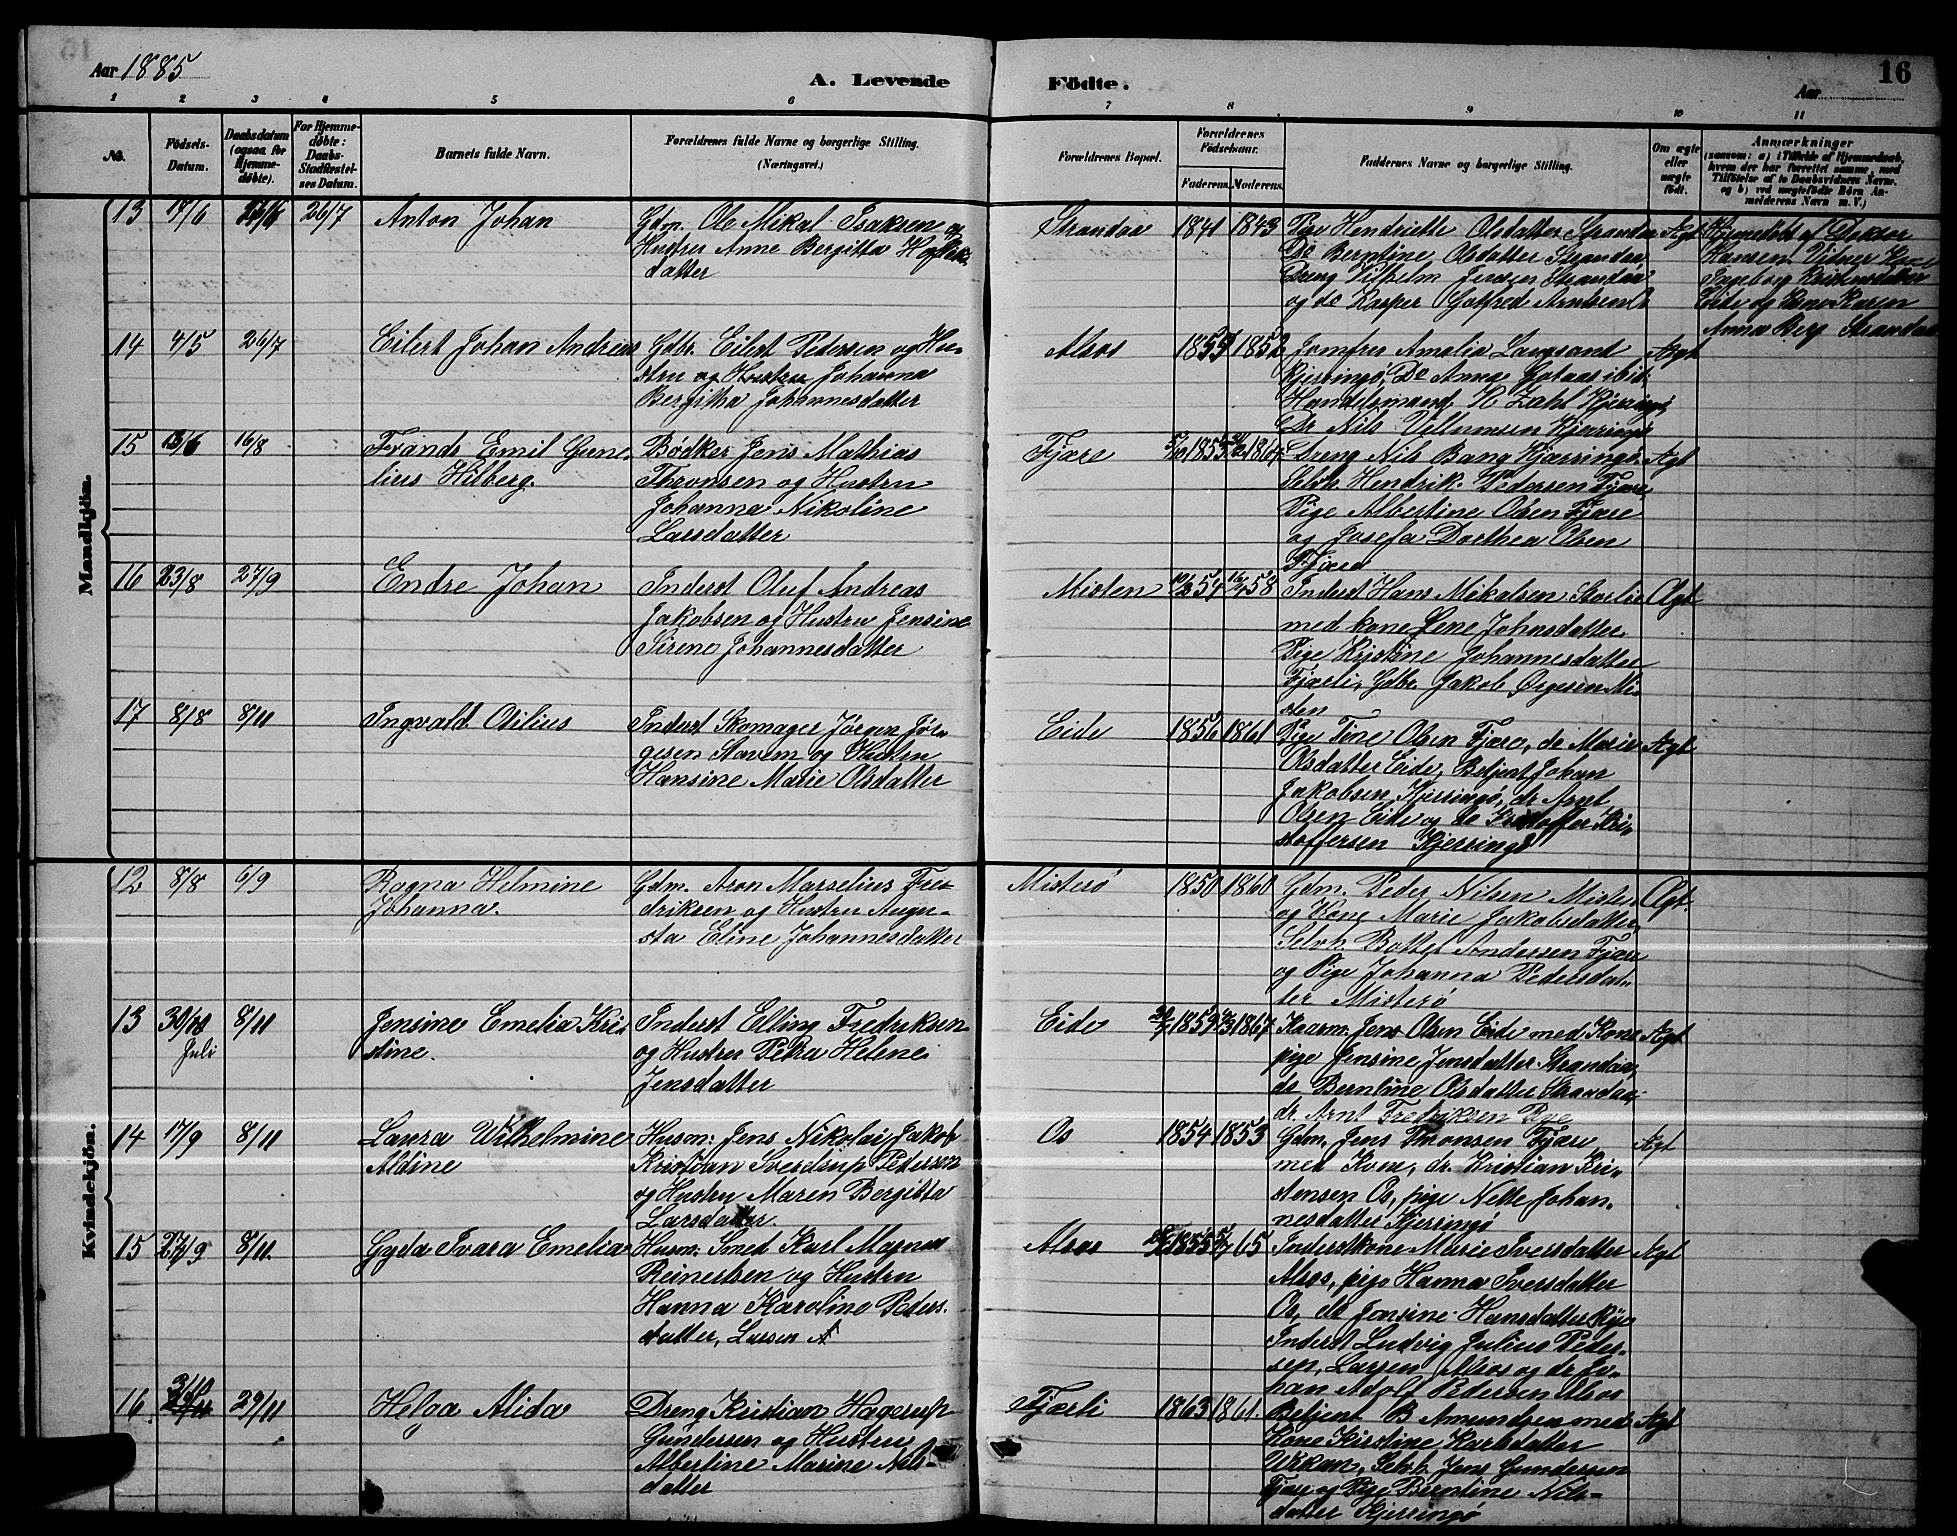 Aar 1885
A. Levende Födte.
16
Aar
1 2 3 4 5 6 7 8 9 10 11
No.
Födsels-Datum.
Daabsdatum (ogsaa for Hjemmedöbte).
For Hjemmedöbte: Daabs-Stadfæstelses Datum.
Barnets fulde Navn.
Forældrenes fulde Navne og borgerlige Stilling. (Næringsvei.)
Forældrenes Bopæl.
Forældrenes Födselsaar.
Faderens. Moderens.
Faddernes Navne og borgerlige Stilling.
Om ægte eller uægte födt.
Anmærkninger
(saasom: a) i Tilfælde af Hjemmedaab, hvem der har forrettet samme, med Tilföielse af to Daabsvidners Navne, og b) ved uægtefödte Börn Anmelderens Navn m. V.)
Mandkjön.
13 17/6 26/7 Anton Johan
Gdm. Ole Mikal Isaksen og
Hustru Anne Bergitta
datter
Strandaa 1841 1843
Pige Hendriette Olsdatter Strandaa
Do Berntine Olsdatter Strandaa
Dreng Vilhelm Jensen Strandaa
og do Kasper Gotfred
Ægt
Hjemmedöbt af
Hansen Vidner
Ingeborg
Eide og Karen
Anna Berg Strandaa
14 4/5 26/7 Eilert Johan Andreas
Gdbr. Eilert Pedersen og Hu-
stru og Hustru Johanna
Bergitha Johannesdatter
Alsos 1852
Jomfru Amalia Langsand
Kjerringö, Do Anna Gotaas ibid;
Handelsmand K Zahl Kjerringö
Dr Nils Kjerringö
Ægt
15 16/8 Frands Emil Gune-
lius Hilberg.
Bödker Jens Mathias
Thronsen og Hustru
Johanna Nikoline
Larsdatter
Fjære
Dreng Nils Bang Kjærringö
Selvh. Hendrik Pedersen Fjære
Pige Albertine Olsen Fjære
og Josefa Dorthea Olsen
Fjære
Ægt
16 23/8 27/9 Endre Johan
Inderst Oluf Andreas
Jakobsen og Hustru Jensine
Sirene Johannesdatter
Misten 58
Inderst Hans Mikalsen Storlie
med kone Lene Johnsdatter
Pige Kristine Johannesdatter
Fjærli, Gdbr. Jakob Örgesen Mi-
sten
Ægt
17 8/8 8/11 Ingvald Otilius
Inderst Skomager Jörgen Jör-
gesen Stavem og Hustru
Hansine Marie Olsdatter
Eide 1856 1861
Pige Tine Olsen Fjære, do Marie
Olsdatter Eide, Betjent Johan
Jakobsen Kjerringö, dr Arnt
Olsen Eide og do Kristoffer Kri-
stoffersen Kjerringö
Ægt
Kvindekjön.
12 8/8 6/9 Ragna Helmine
Johanna.
Gdm. Aron Marselius Fre-
driksen og Hustru Augu-
sta Eline Johannesdatter
Misterö 1850 1860
Gdm. Peder Nilsen Mister
og Kone Marie Jakobsdatter
Selvh. Bottel Andersen Fjære
og Pige Johanna Pedersdat-
ter Misterö
Ægt.
13 30/ 8/11 Jensine Emelia Kri-
Juli
stine.
Inderst Elling Fredriksen
og Hustru Petra Helene
Jensdatter
Eide 1867
Kaarm. Jens Olsen Eide med Kone
pige Jensine Jensdatter Strandaa,
do Berntine Olsdatter Strandaa,
dr. Arnt Fredriksen
Ægt
14 17/9 8/11 Laura Wilhelmine
Aldine
Husm: Jens Nikolai Jakob
Kristian Sverdrup Pedersen
og Hustru Maren Bergitta
Larsdatter.
Os 1854 1853
Gdm. Jens Thronsen Fjære
med Kone, dr. Kristian Kri-
stensen Os, pige Nette Johan-
nesdatter Kjerringö
Ægt
15 8/11. Gyda Ivara Emelia
Husm: Smed Karl Magnus
Reinertsen og Hustru
Hanna Karoline Peders-
datter, Larsen
Alsos 1855 65
Inderstkone Marie Iversdatter
Alsos, pige Hanna Iversdatter
Os, do Jensine Hansdatter
Inderst Ludvig Julius Peder-
sen, Larsen Alsos og dr. Jo-
han Adolf Pedersen Alsos
Ægt
16. 3/10 29/11 Helga Alida
Dreng Kristian Hagerup
Gundersen og Hustru
Albertine Marine Nils-
datter
Fjærli 1863 1861.
Betjent B Amundsen med
Kone Kirstine Karlsdatter
Selvh. Jens Gundersen
Fjære og Pige Berntine Nils-
datter Kjerringö
Ægt